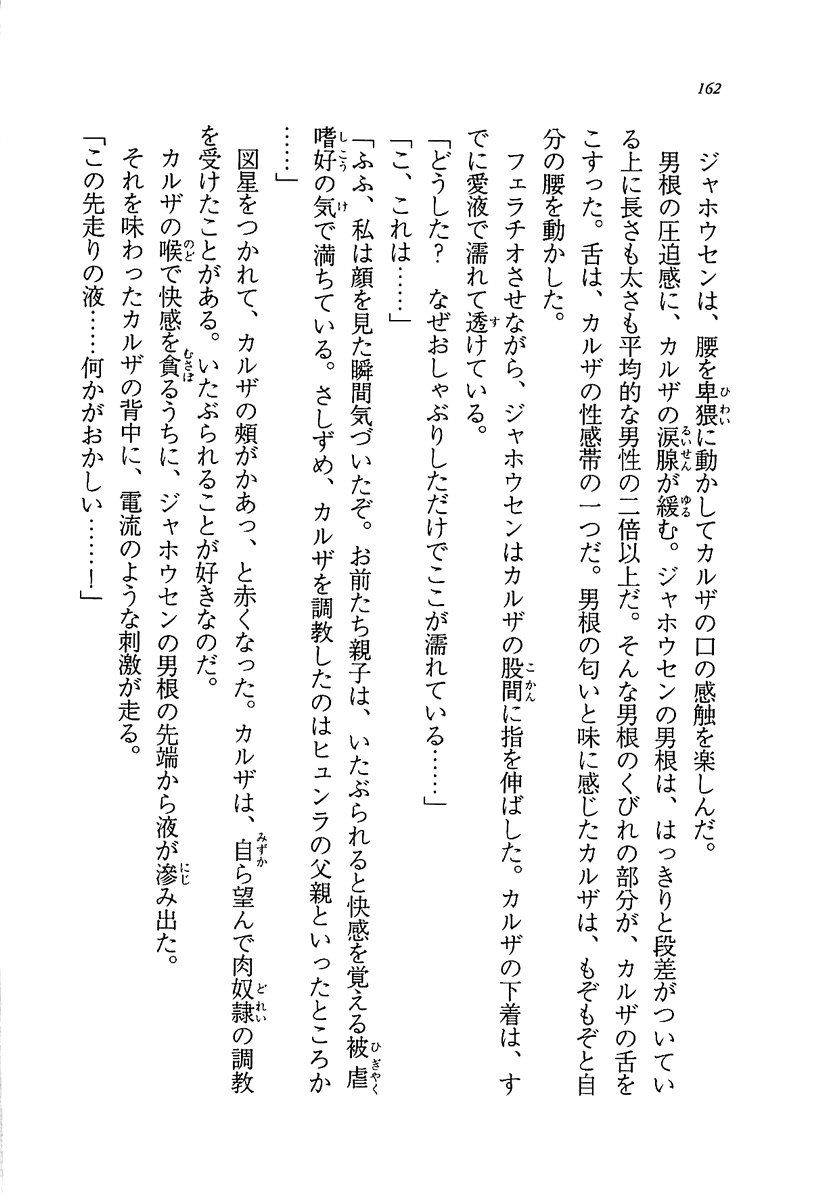 162
ジャホウセンは、腰を卑猥に動かしてカルザの口の感触を楽しんだ。
男根の圧迫感に、カルザの涙腺が緩む。ジャホウセンの男根は、はっきりと段差がついてい
る上に長さも太さも平均的な男性の二倍以上だ。そんな男根のくびれの部分が、カルザの舌を
こすった。舌は、カルザの性感帯の一つだ。男根の匂いと味に感じたカルザは、もぞもぞと自
分の腰を動かした。
フェラチオさせながら、ジャホウセンはカルザの股間に指を伸ばした。カルザの下着は、す
でに愛液で濡れて透けている。
「どうした？　なぜおしゃぶりしただけでここが濡れている……」
「こ、これは……」
「ふふ、私は顔を見た瞬間気づいたぞ。お前たち親子は、いたぶられると快感を覚える被虐
嗜好の気で満ちている。さしずめ、カルザを調教したのはヒュンラの父親といったところか
……」
図星をつかれて、カルザの頬がかあっ、と赤くなった。カルザは、自ら望んで肉奴隷の調教
を受けたことがある。いたぶられることが好きなのだ。
カルザの喉で快感を貪るうちに、ジャホウセンの男根の先端から液が滲み出た。
それを味わったカルザの背中に、電流のような刺激が走る。
「この先走りの液……何かがおかしい……！」